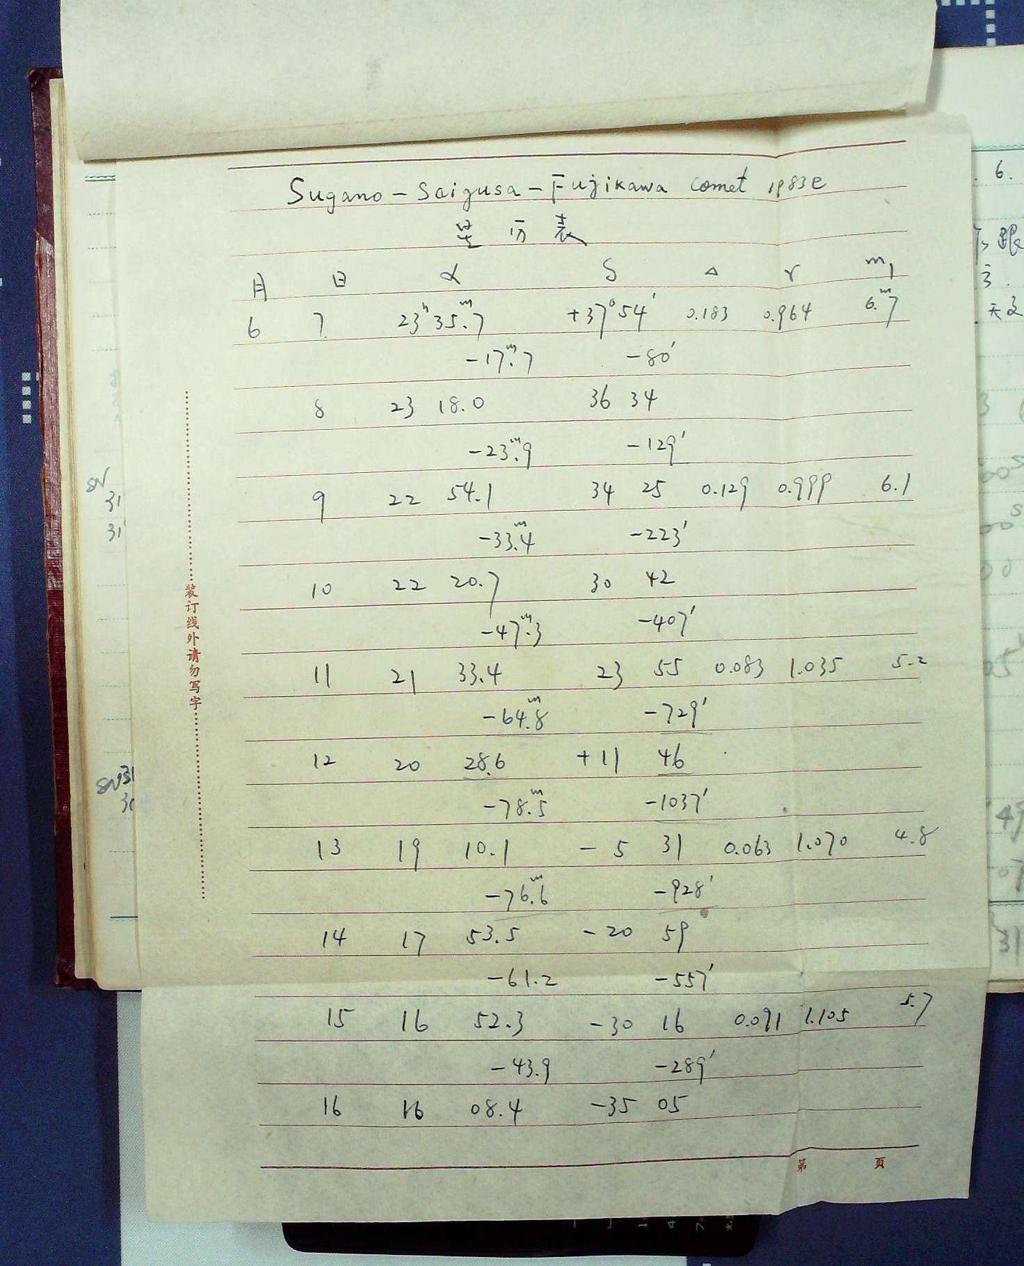 Sugano-Saigusa-Fujikawa comet 1983e
星历表
月 日 α δ Δ r m₁
6 7 23ʰ35ᵐ.7 +37°54′ 0.183 0.964 6ᵐ.7
-17ᵐ.7 -80′
8 23 18.0 36 34
-23ᵐ.9 -129′
9 22 54.1 34 25 0.129 0.999 6.1
-33ᵐ.4 -223′
10 22 20.7 30 42
-47ᵐ.3 -407′
11 21 33.4 23 55 0.083 1.035 5.2
-64ᵐ.8 -729′
12 20 28.6 +11 46
-78ᵐ.5 -1037′
13 19 10.1 -5 31 0.063 1.070 4.8
-76ᵐ.6 -928′
14 17 53.5 -20 59
-61.2 -557′
15 16 52.3 -30 16 0.091 1.105 5.7
-43.9 -289′
16 16 08.4 -35 05
第 页
装订线外请勿写字
SN
31
31
SN31
6.
跟
天文